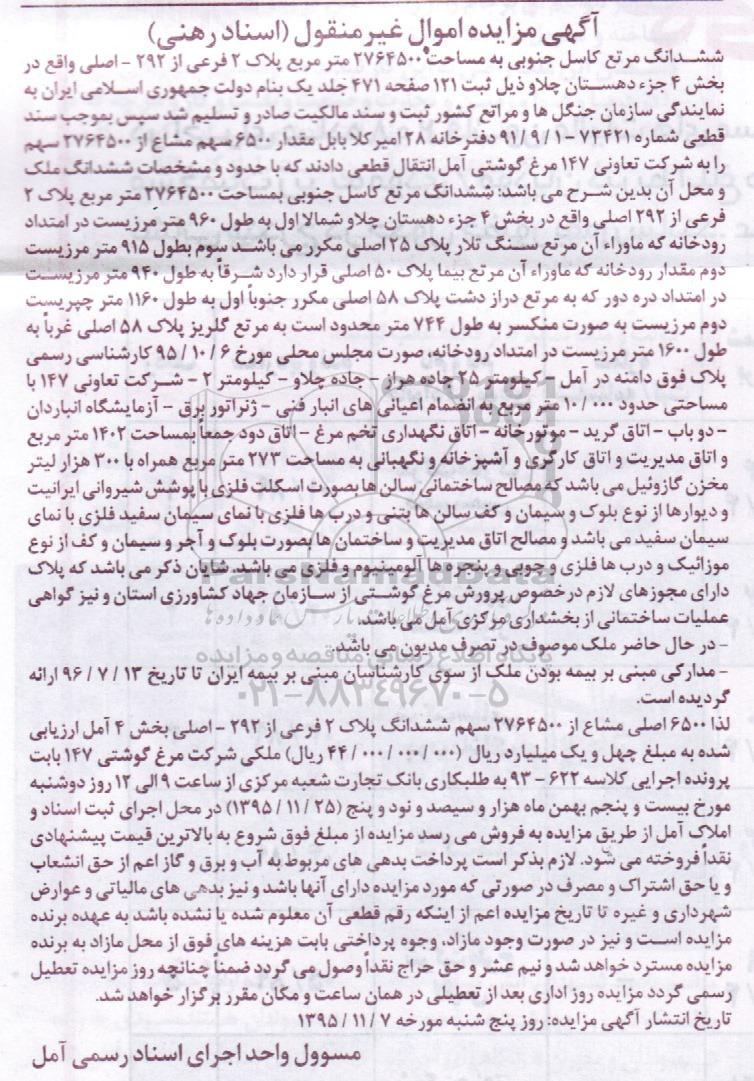 آگهی مزایده اموال غیرمنقول (اسناد رهنی)
ششدانگ مرتع کاسل جنوبی به مساحت ۲۷۶۴۵۰۰ متر مربع پلاک ۲ فرعی از ۲۹۲ - اصلی واقع در
بخش ۴ جزء دهستان چلاو ذیل ثبت ۱۲۱ صفحه ۴۷۱ جلد یک بنام دولت جمهوری اسلامی ایران به
نمایندگی سازمان جنگل ها و مراتع کشور ثبت و سند مالکیت صادر و تسلیم شد سپس بموجب سند
قطعی شماره ۷۳۴۲۱ - ۹۱/۹/۱ دفترخانه ۲۸ امیرکلا بابل مقدار ۶۵۰۰ سهم مشاع از ۲۷۶۴۵۰۰ سهم
را به شرکت تعاونی ۱۴۷ مرغ گوشتی آمل انتقال قطعی دادند که با حدود و مشخصات ششدانگ ملک
و محل آن بدین شرح می باشد: ششدانگ مرتع کاسل جنوبی بمساحت ۲۷۶۴۵۰۰ متر مربع پلاک ۲
فرعی از ۲۹۲ اصلی واقع در بخش ۴ جزء دهستان چلاو شمالا اول به طول ۹۶۰ متر مرزیست در امتداد
رودخانه که ماوراء آن مرتع سنگ تلار پلاک ۲۵ اصلی مکرر می باشد سوم بطول ۹۱۵ متر مرزیست
دوم مقدار رودخانه که ماوراء آن مرتع بیما پلاک ۵۰ اصلی قرار دارد شرقاً به طول ۹۴۰ متر مرزیست
در امتداد دره دور که به مرتع دراز دشت پلاک ۵۸ اصلی مکرر جنوباً اول به طول ۱۱۶۰ متر چپریست
دوم مرزیست به صورت منکسر به طول ۷۴۴ متر محدود است به مرتع گلریز پلاک ۵۸ اصلی غرباً به
طول ۱۶۰۰ متر مرزیست در امتداد رودخانه، صورت مجلس محلی مورخ ۹۵/۱۰/۶ کارشناسی رسمی
پلاک فوق دامنه در آمل - کیلومتر ۲۵ جاده هراز - جاده چلاو - کیلومتر ۲ - شرکت تعاونی ۱۴۷ با
مساحتی حدود ۱۰/۰۰۰ متر مربع به انضمام اعیانی های انبار فنی - ژنراتور برق - آزمایشگاه انباردان
- دو باب - اتاق گرید - موتورخانه - اتاق نگهداری تخم مرغ - اتاق دود جمعاً بمساحت ۱۴۰۲ متر مربع
و اتاق مدیریت و اتاق کارگری و آشپزخانه و نگهبانی به مساحت ۲۷۳ متر مربع همراه با ۳۰۰ هزار لیتر
مخزن گازوئیل می باشد که مصالح ساختمانی سالن ها بصورت اسکلت فلزی با پوشش شیروانی ایرانیت
و دیوارها از نوع بلوک و سیمان و کف سالن ها بتنی و درب ها فلزی با نمای سیمان سفید فلزی با نمای
سیمان سفید می باشد و مصالح اتاق مدیریت و ساختمان ها بصورت بلوک و آجر و سیمان و کف از نوع
موزائیک و درب ها فلزی و چوبی و پنجره ها آلومینیوم و فلزی می باشد. شایان ذکر می باشد که پلاک
دارای مجوزهای لازم درخصوص پرورش مرغ گوشتی از سازمان جهاد کشاورزی استان و نیز گواهی
عملیات ساختمانی از بخشداری مرکزی آمل می باشد.
- در حال حاضر ملک موصوف در تصرف مدیون می باشد.
- مدارکی مبنی بر بیمه بودن ملک از سوی کارشناسان مبنی بر بیمه ایران تا تاریخ ۹۶/۷/۱۳ ارائه
گردیده است.
لذا ۶۵۰۰ اصلی مشاع از ۲۷۶۴۵۰۰ سهم ششدانگ پلاک ۲ فرعی از ۲۹۲ - اصلی بخش ۴ آمل ارزیابی
شده به مبلغ چهل و یک میلیارد ریال (۴۴/۰۰۰/۰۰۰/۰۰۰ ریال) ملکی شرکت مرغ گوشتی ۱۴۷ بابت
پرونده اجرایی کلاسه ۶۲۲ - ۹۳ به طلبکاری بانک تجارت شعبه مرکزی از ساعت ۹ الی ۱۲ روز دوشنبه
مورخ بیست و پنجم بهمن ماه هزار و سیصد و نود و پنج (۱۳۹۵/۱۱/۲۵) در محل اجرای ثبت اسناد و
املاک آمل از طریق مزایده به فروش می رسد مزایده از مبلغ فوق شروع به بالاترین قیمت پیشنهادی
نقداً فروخته می شود. لازم بذکر است پرداخت بدهی های مربوط به آب و برق و گاز اعم از حق انشعاب
و یا حق اشتراک و مصرف در صورتی که مورد مزایده دارای آنها باشد و نیز بدهی های مالیاتی و عوارض
شهرداری و غیره تا تاریخ مزایده اعم از اینکه رقم قطعی آن معلوم شده یا نشده باشد به عهده برنده
مزایده است و نیز در صورت وجود مازاد، وجوه پرداختی بابت هزینه های فوق از محل مازاد به برنده
مزایده مسترد خواهد شد و نیم عشر و حق حراج نقداً وصول می گردد ضمناً چنانچه روز مزایده تعطیل
رسمی گردد مزایده روز اداری بعد از تعطیلی در همان ساعت و مکان مقرر برگزار خواهد شد.
تاریخ انتشار آگهی مزایده: روز پنج شنبه مورخه ۱۳۹۵/۱۱/۷
مسوول واحد اجرای اسناد رسمی آمل
ParsNamadData
پایگاه اطلاع رسانی مناقصه و مزایده
۰۲۱-۸۸۳۴۹۶۷۰-۵